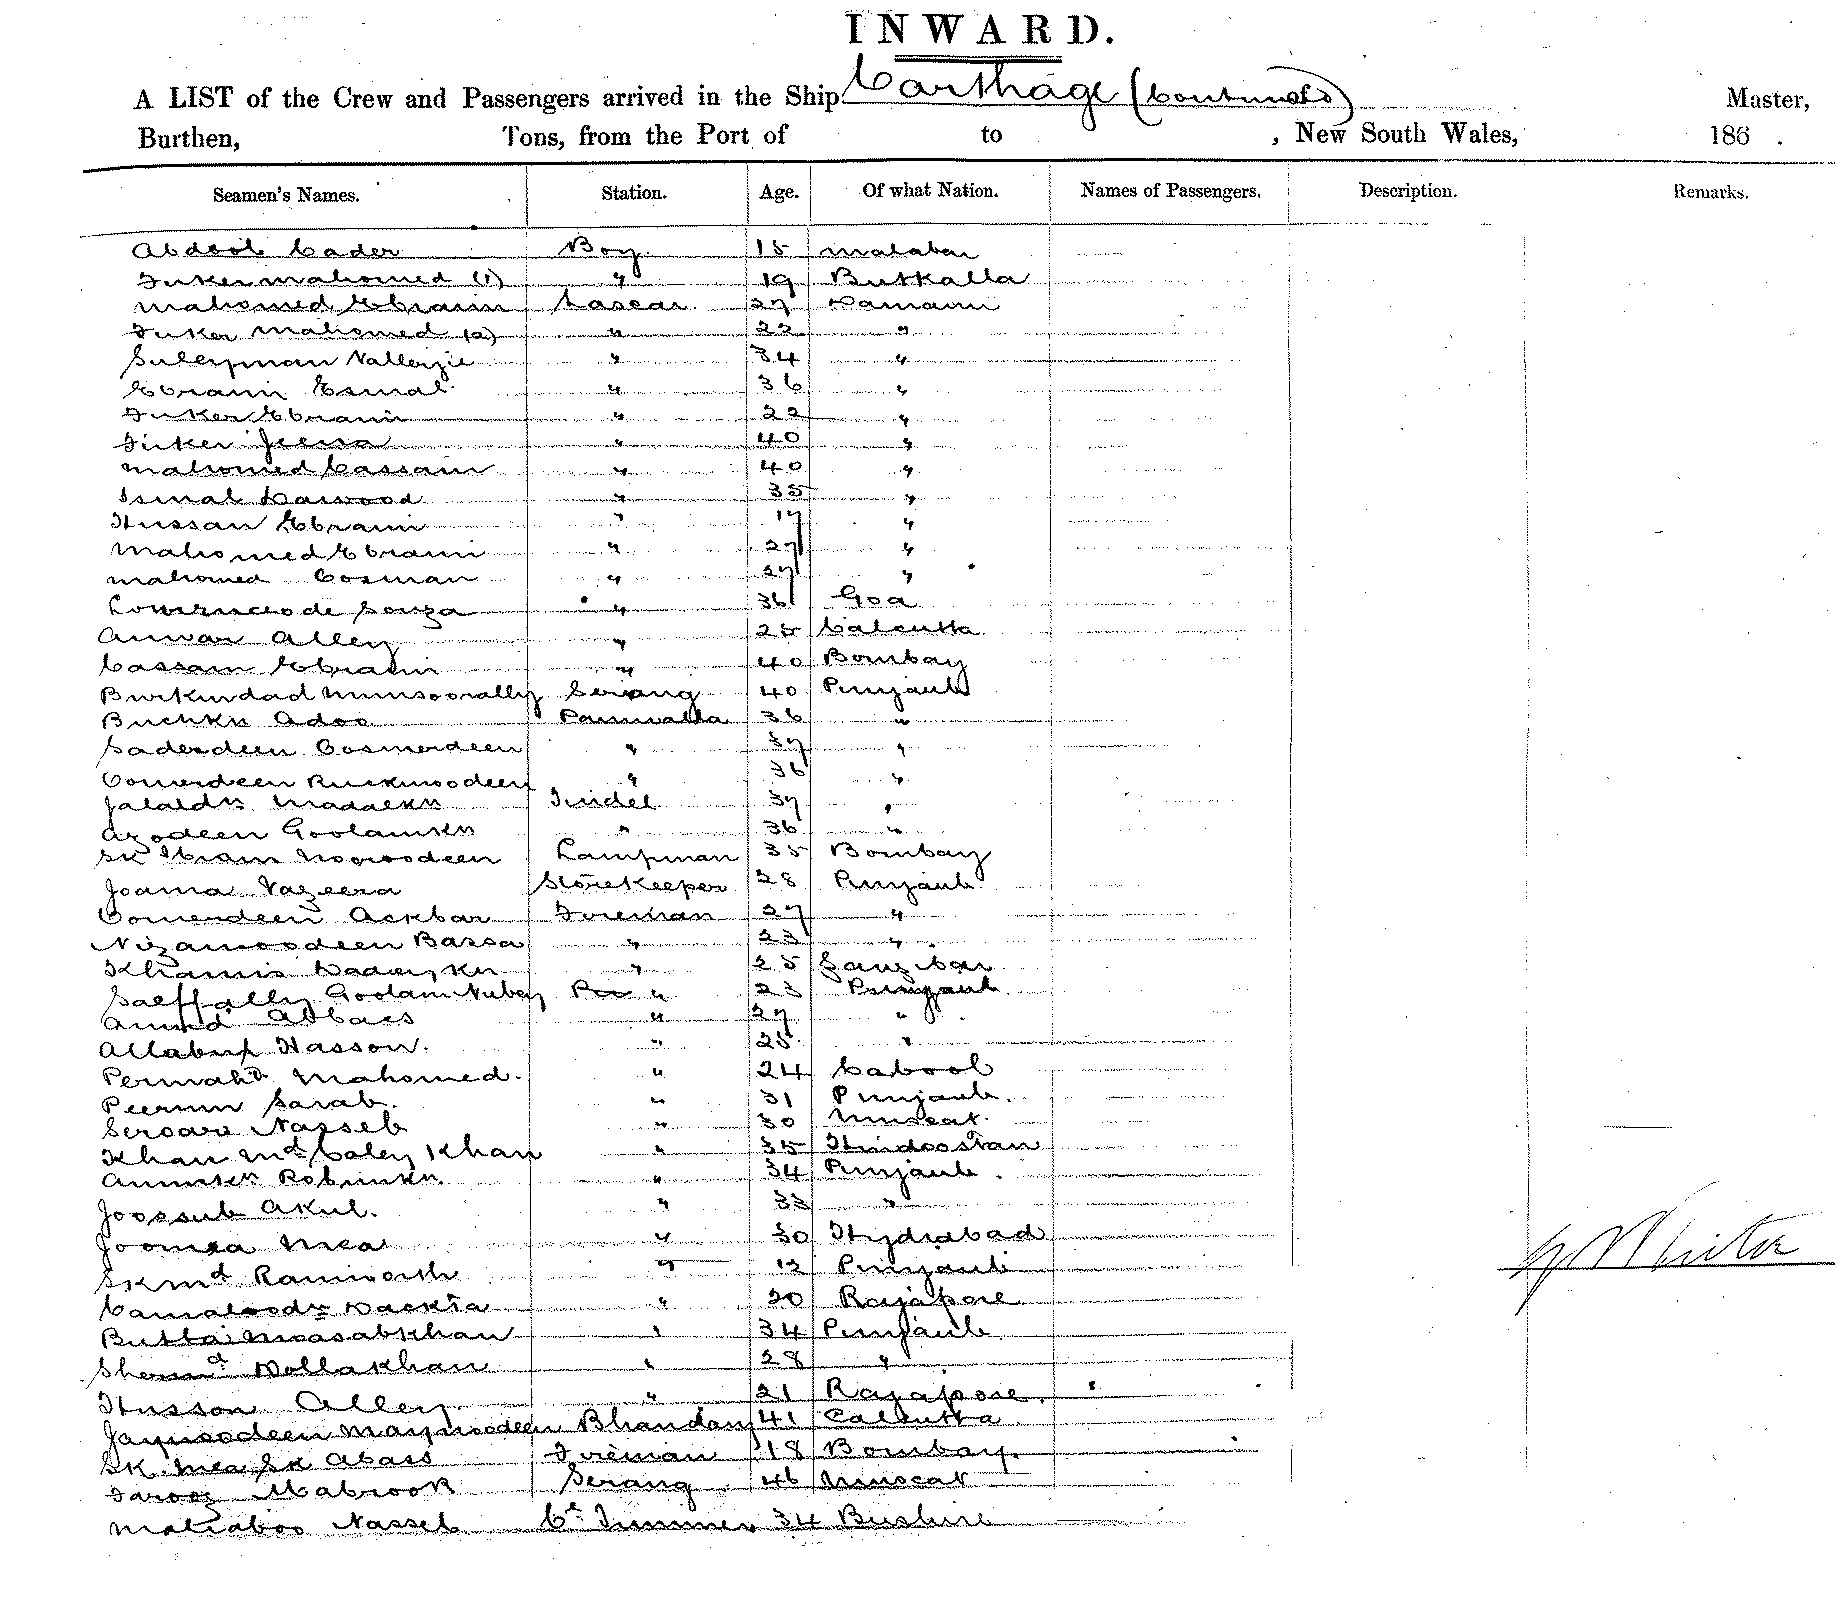 INWARD.
A LIST of the Crew and Passengers arrived in the Ship Carthage (Continued) Master,
Burthen, Tons, from the Port of to , New South Wales, 186 .
Seamen's Names. Station. Age. Of what Nation. Names of Passengers. Description. Remarks.
Abdool Cader Boy 15 Malabar
Fuker Mahomed (1) " 19 Butkalla
Mahomed Ebraim Lascar 27 Damaun
Fuker Mahomed (2) " 22 "
Suleyman Vallejie " 34 "
Ebraim Esmal " 36 "
Fuker Ebraim " 22 "
Fuker Jeewa " 40 "
Mahomed Cassam " 40 "
Ismal Dawood " 35 "
Hussan Ebraim " 17 "
Mahomed Ebraim " 27 "
Mahomed Cosman " 27 "
de Souza " 36 Goa
Anwar Alley " 25 Calcutta
Cassam Ebraim " 40 Bombay
Burkindad Munsoorally Serang 40 Punjaub
Buchku Adoo Paniwalla 36 "
Saderdeen Cosmerdeen " 37 "
Comerdeen Rukmoodeen " 36 "
Jalaldn Tindel 37 "
Azodeen Goolamkn " 36 "
Sk Ibram Noorodeen Lampman 35 Bombay
Joama Vazeera Storekeeper 28 Punjaub
Comerdeen Ackbar Fireman 27 "
Nizamoodeen Bassa " 23 "
Khamis " 25 Zanzibar
Saeffally Goolam Nubey " 23 Punjaub
Amud Abbas " 27 "
Allabux Hasson. " 25 "
Mahomed. " 24 Cabool
Peerun Sarab. " 31 Punjaub.
Seroare Nasseb " 30 Muscat.
Khan Md Caley Khan " 35 Hindoostan
" 34 Punjaub.
Joossub Akul. " 33 "
Joomea Mea " 30 Hydrabad
Sk Md " 12 Punjaub
Camaloodn " 20 Rajapore
Butta Moasabkhan " 34 Punjaub
Shermd Dollakhan " 28 "
Husson Alley " 21 Rajapore.
Jaynoodeen Maynoodeen Bhandary 41 Calcutta
Sk. Mea Sk Abass Fireman 18 Bombay.
Farooz Mabrook Serang 46 Muscat
Nasseb Cl Trimmer 34 Bushire